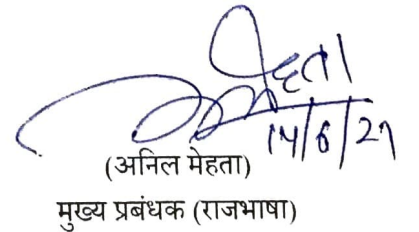 मेहता
14/6/21
(अनिल मेहता)
मुख्य प्रबंधक (राजभाषा)